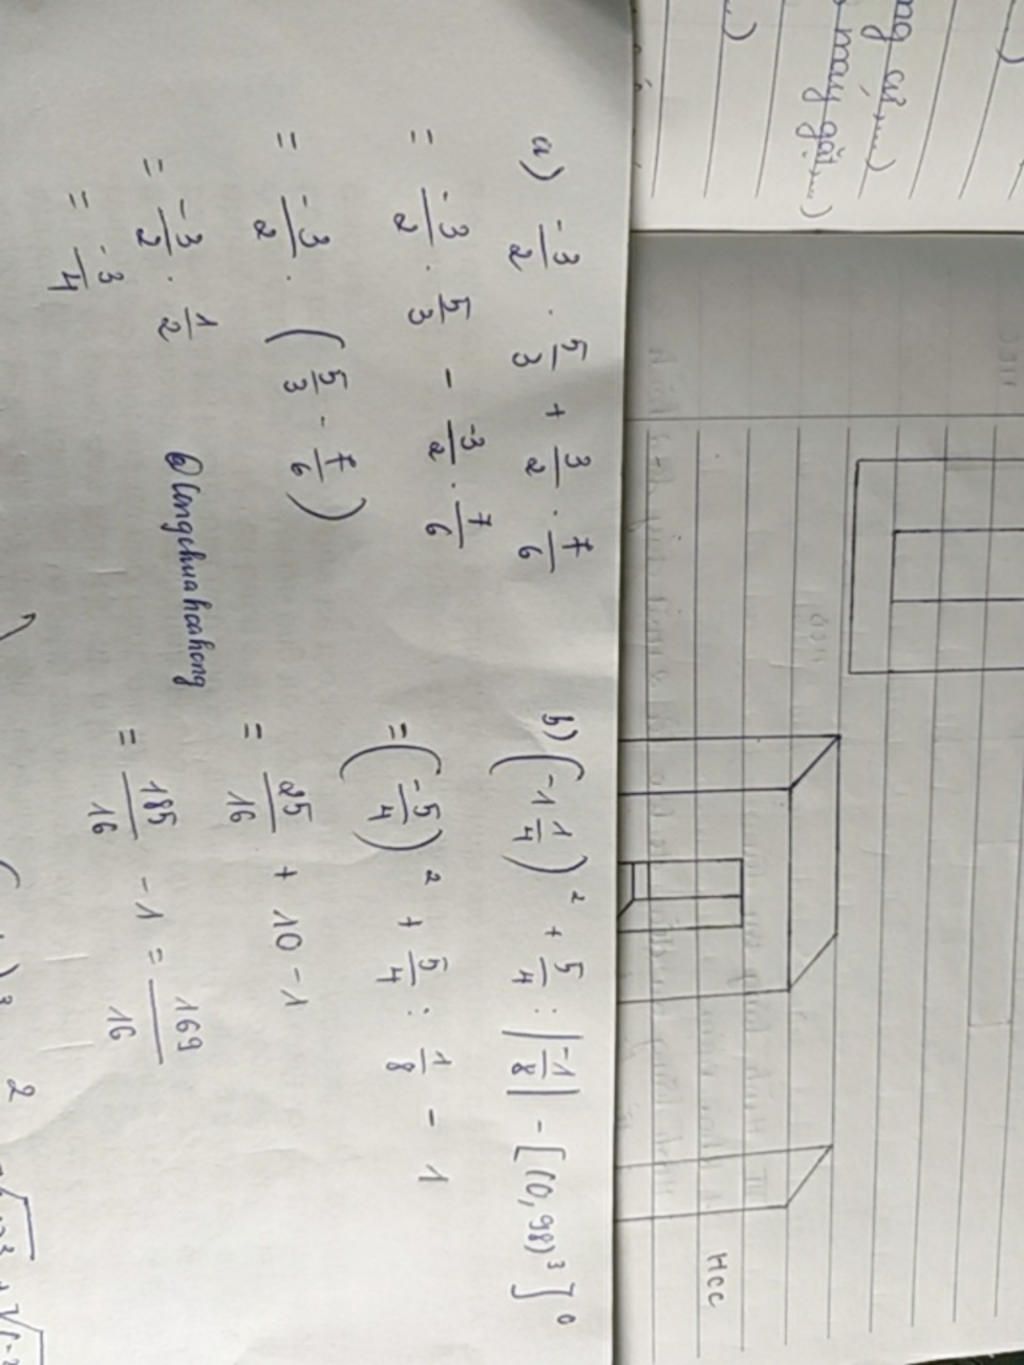 ng cư.....)
may gặt.....)
a) -3/2 . 5/3 + 3/2 . 7/6
= -3/2 . 5/3 - -3/2 . 7/6
= -3/2 . (5/3 - 7/6)
= -3/2 . 1/2
= -3/4
@longchuahoahong
b) (-1 1/4)² + 5/4 : |-1/8| - [(0,98)³]⁰
= (-5/4)² + 5/4 : 1/8 - 1
= 25/16 + 10 - 1
= 185/16 - 1 = 169/16
HCC